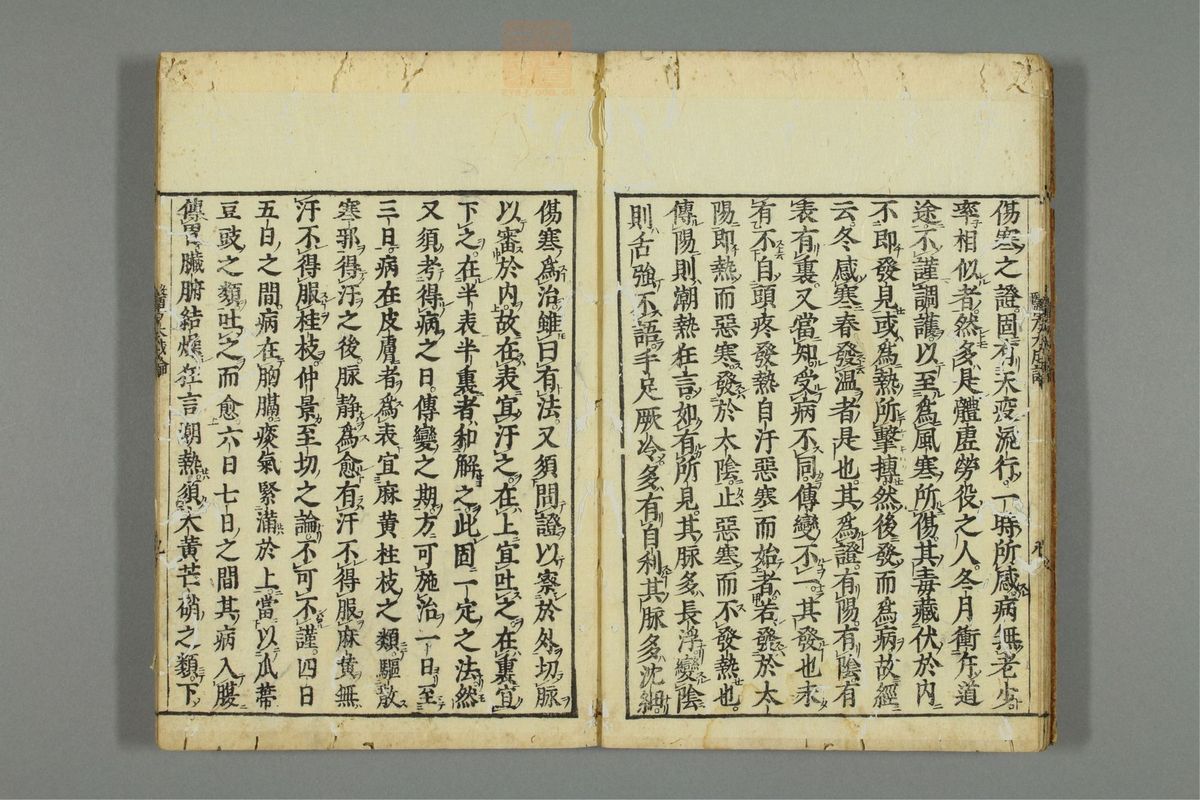 傷寒之證固有天變流行一時所感病無老少
率相似者然多是體虛勞役之人冬月衝在道
途不謹調護以至爲風寒所傷其毒藏伏於内
不即發見或爲熱所擊搏然後發而爲病故經
云冬感寒春發温者是也其爲證有陽有陰有
表有裏又當知受病不同傳變不一其發也未
有不自頭疼發熱自汗惡寒而始者若發於太
陽即熱而惡寒發於太陰止惡寒而不發熱也
傳陽則潮熱狂言如有所見其脉多長浮變陰
則舌強不語手足厥冷多有自利其脉多沈細
傷寒爲治雖曰有法又須問證以察於外切脉
以審於内故在表宜汗之在上宜吐之在裏宜
下之在半表半裏者和解之此固一定之法然
又須考得病之日傳變之期方可施治一日至
三日病在皮膚者爲表宜麻黄桂枝之類驅散
寒邪得汗之後脉静爲愈有汗不得服麻黄無
汗不得服桂枝仲景至切之論不可不謹四日
五日之間病在胸膈痰氣緊滿於上當以瓜蒂
豆豉之類吐之而愈六日七日之間其病入腹
傳胃臟腑結燥狂言潮熱須大黄芒硝之類下